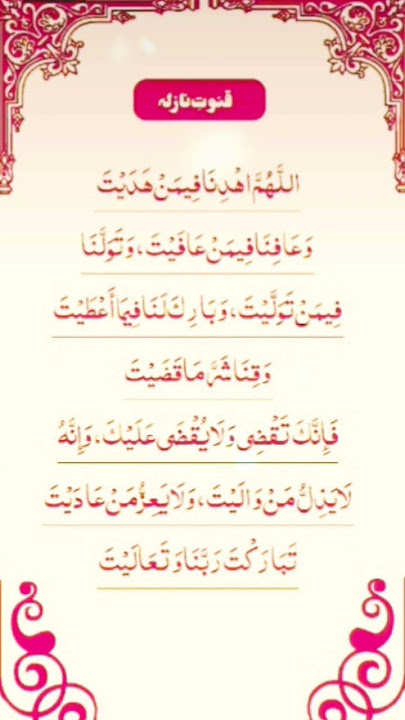 قنوتِ نازلہ
اللَّهُمَّ اهْدِنَا فِيمَنْ هَدَيْتَ
وَعَافِنَا فِيمَنْ عَافَيْتَ، وَتَوَلَّنَا
فِيمَنْ تَوَلَّيْتَ، وَبَارِكْ لَنَا فِيمَا أَعْطَيْتَ
وَقِنَا شَرَّ مَا قَضَيْتَ
فَإِنَّكَ تَقْضِى وَلَا يُقْضَى عَلَيْكَ، وَإِنَّهُ
لَا يَذِلُّ مَنْ وَالَيْتَ، وَلَا يَعِزُّ مَنْ عَادَيْتَ
تَبَارَكْتَ رَبَّنَا وَتَعَالَيْتَ